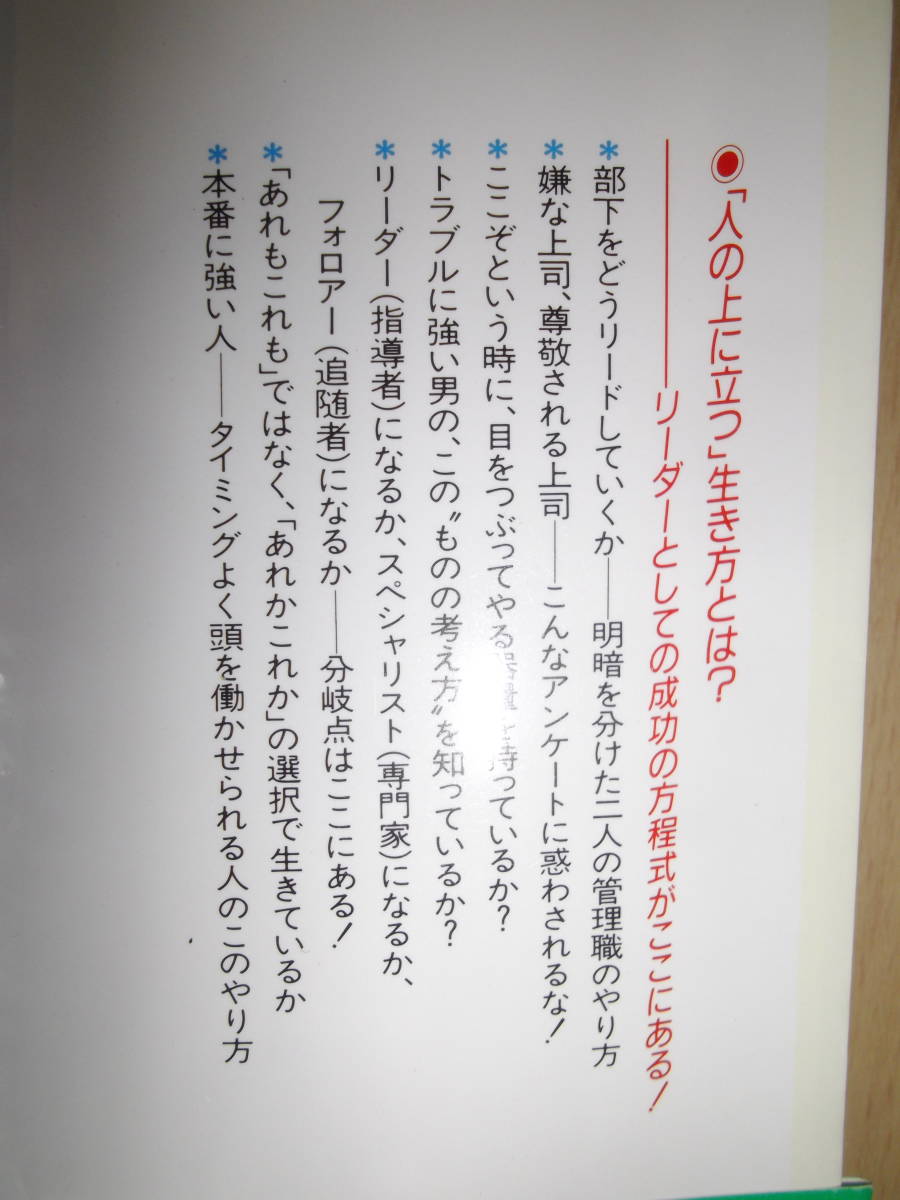 ◉「人の上に立つ」生き方とは？
――リーダーとしての成功の方程式がここにある！
＊部下をどうリードしていくか――明暗を分けた二人の管理職のやり方
＊嫌な上司、尊敬される上司――こんなアンケートに惑わされるな！
＊ここぞという時に、目をつぶってやる器量を持っているか？
＊トラブルに強い男の、この〝ものの考え方〟を知っているか？
＊リーダー（指導者）になるか、スペシャリスト（専門家）になるか、
フォロアー（追随者）になるか――分岐点はここにある！
＊「あれもこれも」ではなく、「あれかこれか」の選択で生きているか
＊本番に強い人――タイミングよく頭を働かせられる人のこのやり方